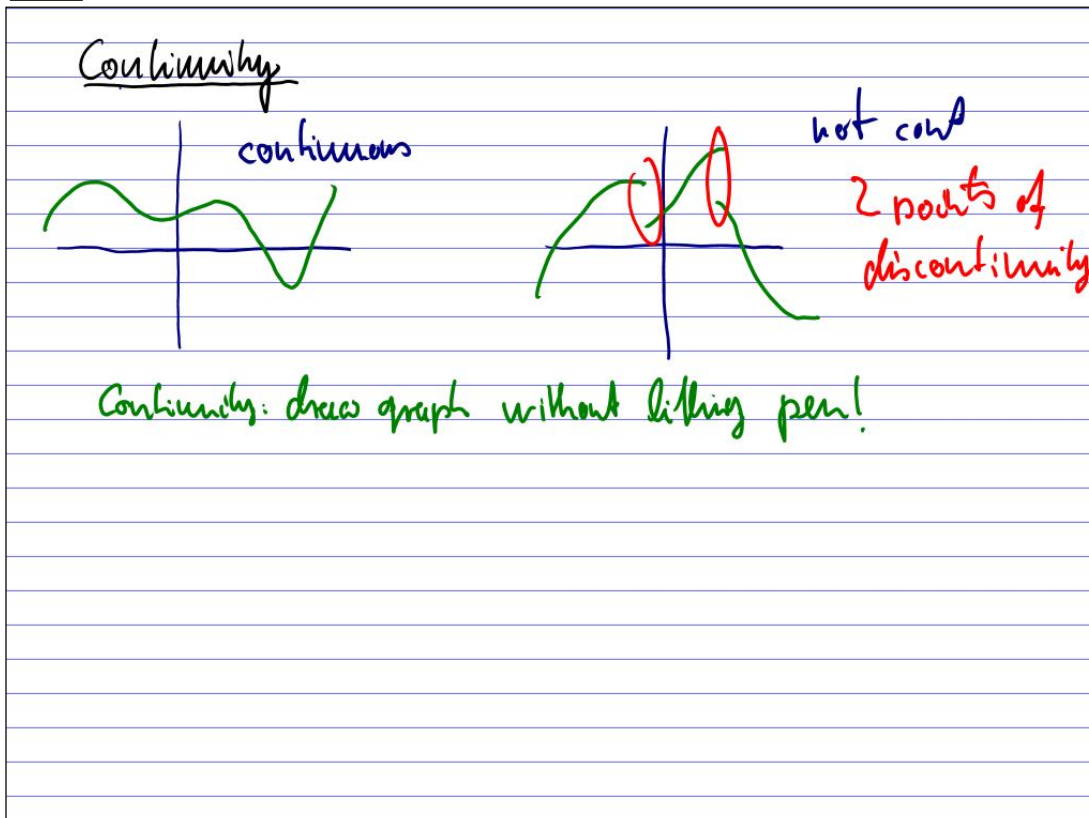 Continuity
continuous
not cont
2 points of
discontinuity
Continuity: draw graph without lifting pen!